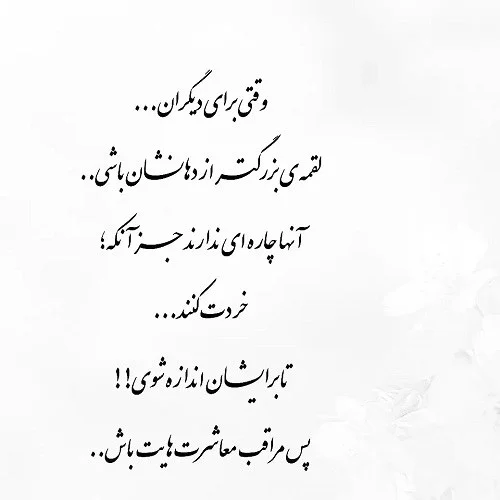 وقتی برای دیگران...
لقمه‌ی بزرگتر از دهانشان باشی..
آنها چاره ای ندارند جز آنکه؛
خردت کنند...
تا برایشان اندازه شوی!!
پس مراقب معاشرت هایت باش..